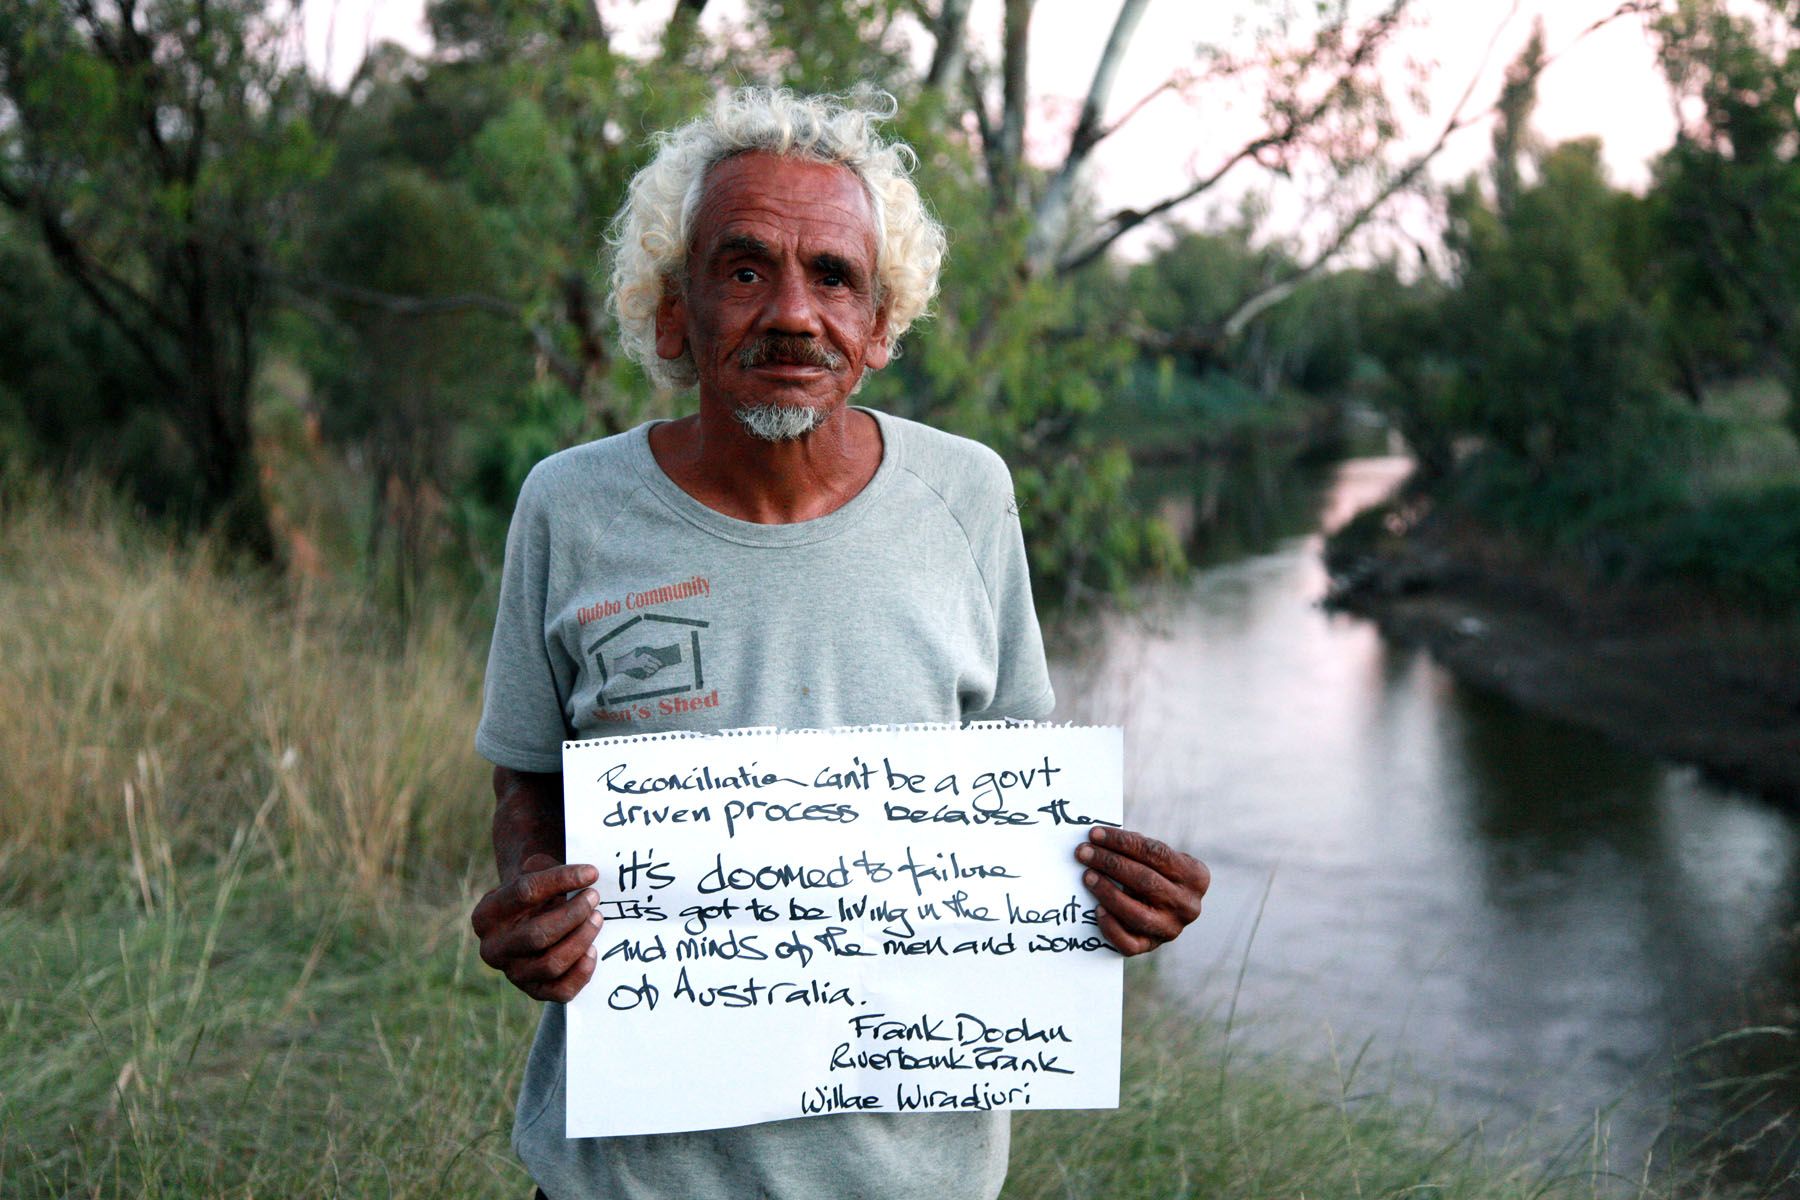 Dubbo Community
Men's Shed
Reconciliation can't be a govt
driven process because then
it's doomed to failure
It's got to be living in the hearts
and minds of the men and women
of Australia.
Frank Doolan
Riverbank Frank
Willae Wiradjuri